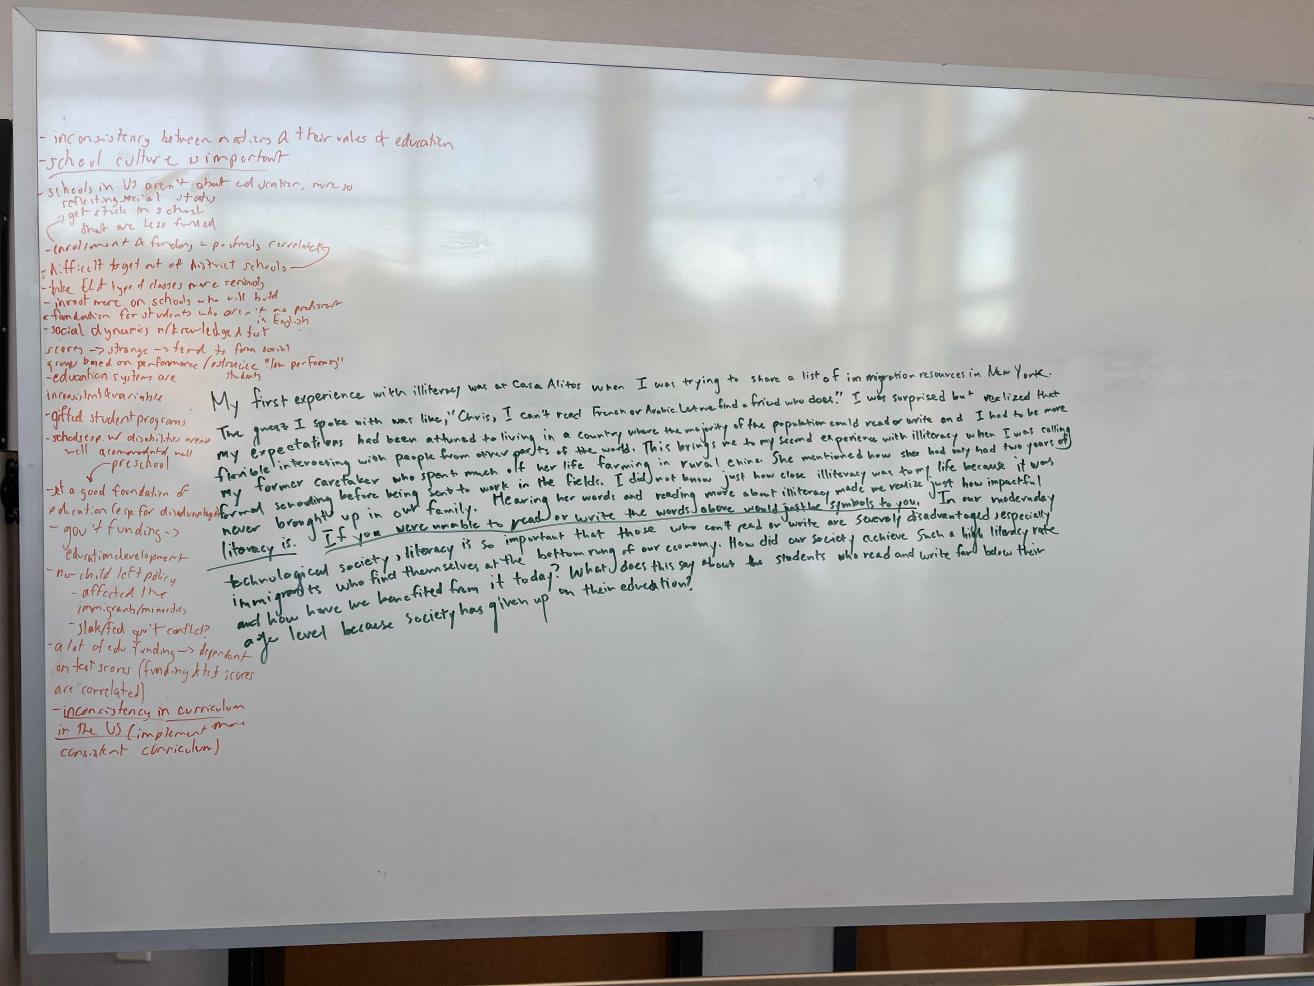 - inconsistency between nations & their values of education
- school culture is important
- schools in US aren't about education, more so
reflecting social status
get stuck in schools
that are less funded
- enrollment & funding = positively correlated
- difficult to get out of district schools
- take ELA type of classes more seriously
- invest more on schools who will build
a foundation for students who aren't as proficient
in English
- social dynamics w/ knowledge & test
scores → strange → tend to form social
groups based on performance / ostracize "low performing"
students
- education systems are
inconsistent & variable
- gifted student programs
- schools esp. w/ disabilities aren't
well accommodated well
preschool
- get a good foundation of
education (esp. for disadvantaged)
- gov't funding →
education development
- no child left policy
- affected the
immigrants/minorities
- state/fed gov't conflict?
- a lot of edu funding → dependent
on test scores (funding & test scores
are correlated)
- inconsistency in curriculum
in the US (implement more
consistent curriculum)
My first experience with illiteracy was at Casa Alitas when I was trying to share a list of immigration resources in New York.
The guest I spoke with was like, "Chris, I can't read French or Arabic. Let me find a friend who does." I was surprised but realized that
my expectations had been attuned to living in a country where the majority of the population could read or write and I had to be more
flexible interacting with people from other parts of the world. This brings me to my second experience with illiteracy when I was calling
my former caretaker who spent much of her life farming in rural china. She mentioned how she had only had two years of
formal schooling before being sent to work in the fields. I did not know just how close illiteracy was to my life because it was
never brought up in our family. Hearing her words and reading more about illiteracy made me realize just how impactful
literacy is. If you were unable to read or write the words above would just be symbols to you. In our modernday
technological society, literacy is so important that those who can't read or write are severely disadvantaged especially
immigrants who find themselves at the bottom rung of our economy. How did our society achieve such a high literacy rate
and how have we benefited from it today? What does this say about the students who read and write far below their
age level because society has given up on their education?